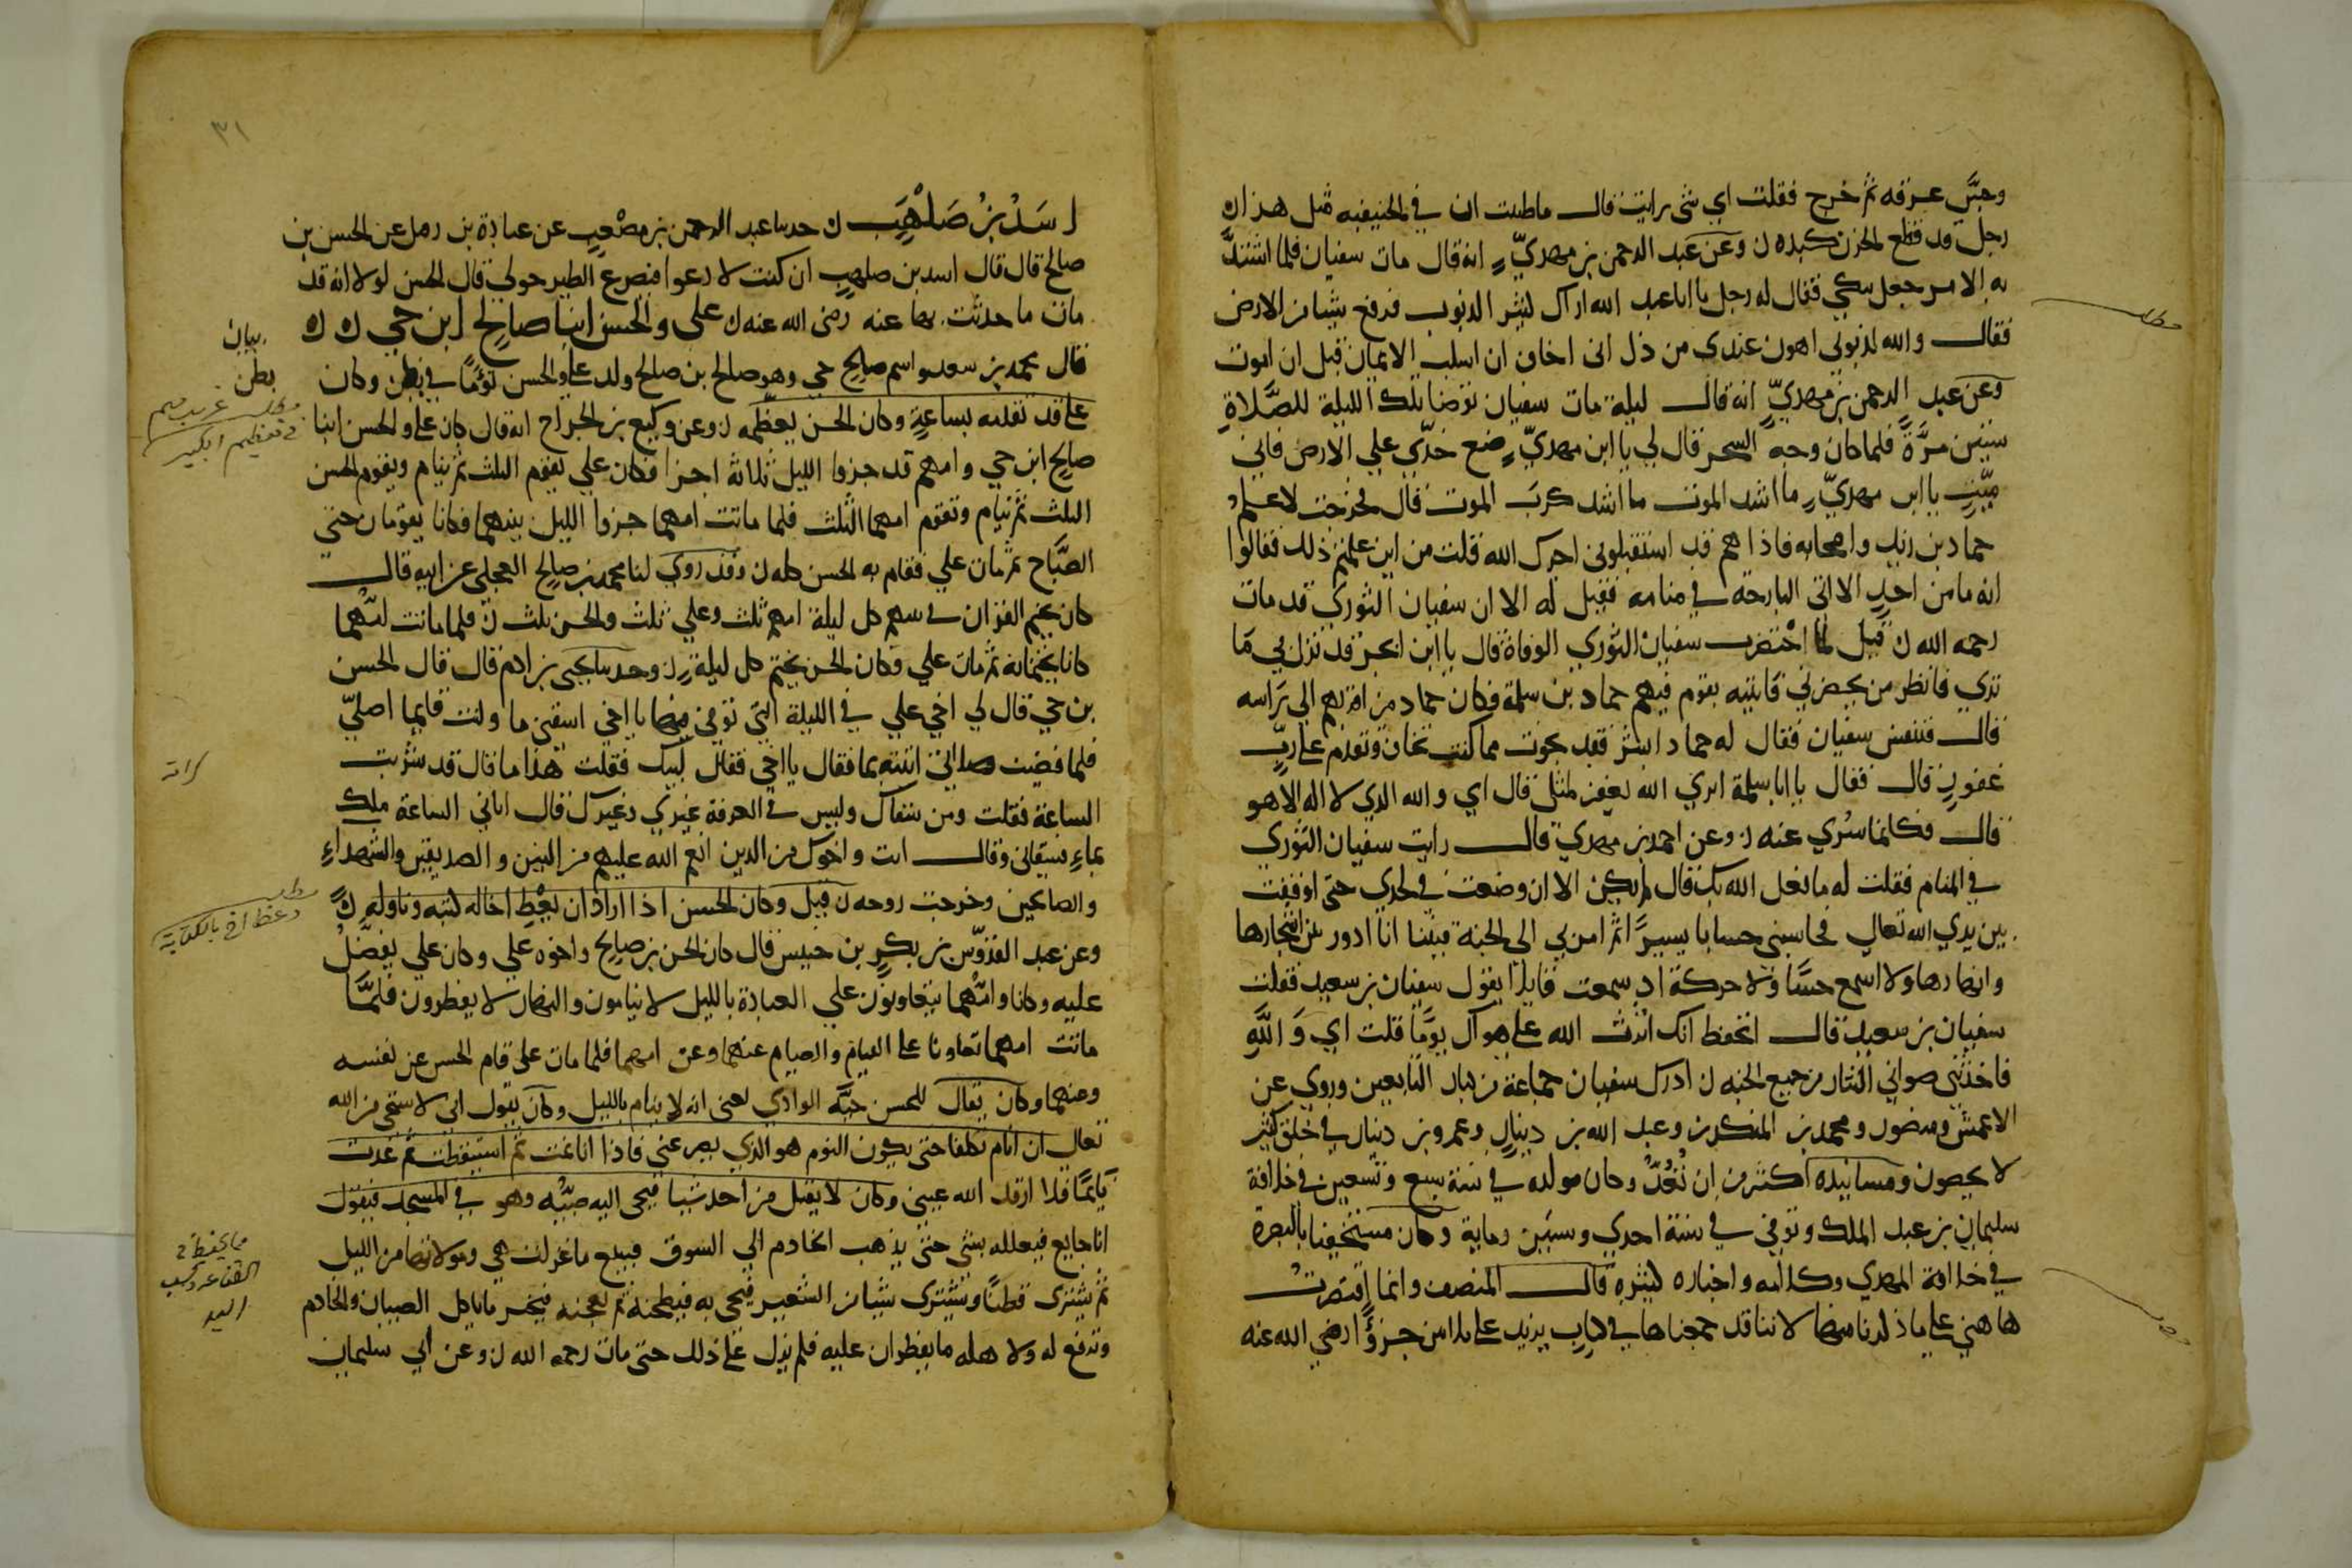 وجسَّ عرقه ثم خرج فقلت اي شي رايت قال ماظننت ان في الحنيفيه مثل هذا ن
رجل قد قطع الحزن كبده ن وعن عبد الرحمن بن مهديّ انه قال مات سفيان فلما اشتدَّ
به الامر جعل يبكي فقال له رجل يا ابا عبد الله اراك كثير الذنوب فرفع شيا من الارض
فقال والله لذنوبي اهون عندي من ذا اني اخاف ان اسلب الايمان قبل ان اموت
وعن عبد الرحمن بن مهديّ انه قال ليلة مات سفيان توضا تلك الليلة للصَّلاةِ
ستين مرَّةً فلما كان وجه السحر قال لي يا ابن مهديّ ضع خدّي علي الارض فاني
ميّت يا ابن مهديّ ما اشد الموت ما اشد كرب الموت قال فخرجت لاعلم
حماد بن زيد واصحابه فاذا هم قد استقبلوني اجرك الله قلت من اين علمتم ذلك فقالوا
انه ما من احد الا اتي البارحة في منامه فقيل له الا ان سفيان الثوري قد مات
رحمه الله ن قيل لما احْتضرَ سفيان الثوري الوفاة قال يا ابن ابجر قد نزل بي ما
تري فانظر من يحضرني فاتيته بقوم فيهم حماد بن سلمة فكان حماد من اقربهم الي راسه
قال فتنفس سفيان فقال له حماد ابشر فقد نجوت مما كنت تخاف وتقدم علي ربٍّ
غفورٍ قال فقال يا ابا سلمة اتري الله يغفر لمثلي قال اي والله الذي لا اله الا هو
قال فكانما سُري عنه ن وعن احمد بن مهدي قال رايت سفيان الثوري
في المنام فقلت له ما فعل الله بك قال لم يكن الا ان وضعت في لحدي حتى اوقفت
بين يدي الله تعالي فحاسبني حسابا يسيرًا ثم امر بي الي الجنة فبينا انا ادور بين اشجارها
وانهارها ولا اسمع حسًّا ولا حركة اذ سمعت قايلا يقول سفيان بن سعيد فقلت
سفيان بن سعيد قال اتحفظ انك اثرت الله علي هواك يومًا قلت اي وَ اللَّهِ
فاخذتني صواني النثار من جميع الجنه ن ادرك سفيان جماعة من كبار التابعين وروي عن
الاعمش ومنصور ومحمد بن المنكدر وعبد الله بن دينار وعمرو بن دينار في خلق كثير
لا يحصون ومسانيده اكثر من ان تُعَدَّ وكان مولده في سنة سبع وتسعين في خلافة
سليمان بن عبد الملك وتوفي في سنة احدي وستين وماية وكان مستخفيا بالبصرة
في خلافة المهدي وكلامه واخباره كثيرة قال المصنف وانما اقتصرتُ
هاهني علي ما ذكرنا منها لاننا قد جمعناها في كتاب يزيد علي ثلاثين جزؤًا رضي الله عنه
مطلب
مطلب
٣١
اسَدُ بنُ صَلْهَبٍ ن حدثنا عبد الرحمن بن مصْعبٍ عن عبادة بن رجل عن الحسن بن
صالح قال قال اسد بن صلهب ان كنت لادعوا فتصرع الطير حولي قال الحسن لولا انه قد
مات ما حدثت بها عنه رضي الله عنه ن علي والحسن ابنا صالح ابن حي ن ن
قال محمد بن سعد واسم صالح حي وهو صالح بن صالح ولد علي والحسن توؤمًا في بطن وكان
علي قد تقدمه بساعةٍ وكان الحسن يعظّمه ن وعن وكيع بن الجراح انه قال كان علي والحسن ابنا
صالح ابن حي وامهم قد جزوا الليل ثلاثة اجزا فكان علي يقوم الثلث ثم ينام ويقوم الحسن
الثلث ثم ينام وتقوم امهما الثلث فلما ماتت امهما جزوا الليل بينهما فكانا يقومان حتي
الصَّباح ثم مات علي فقام به الحسن كله ن وقد روي لنا محمد بن صالح العجلي عن ابيه قال
كان يختم القران في بيتهم كل ليلة امهم ثلث وعلي ثلث والحسن ثلث ن فلما ماتت امُّهما
كانا يختمانه ثم مات علي فكان الحسن يختم كل ليلة ن وحدثنا يحيى بن ادم قال قال الحسن
بن حي قال لي اخي علي في الليلة التي توفي فيها يا اخي اسقني ما وكنت قايما اصلّي
فلما قضيت صلاتي اتيته بما فقال يا اخي فقال لبيك فقلت هذا ما قال قد شربت
الساعة فقلت ومن سقاك وليس في الغرفة غيري وغيرك قال اتاني الساعة ملك
بماءٍ فسقاني وقال انت واخوك من الذين انعم الله عليهم من النبيين والصديقين والشهداءِ
والصالحين وخرجت روحه ن قيل وكان الحسن اذا اراد ان يعْظِ اخا له كتبه وناوله ن
وعن عبد القدوّس بن بكرٍ بن خنيس قال كان الحسن بن صالح واخوه علي وكان علي يفضَّلُ
عليه وكانا وامُّهما يتعاونون علي العبادة بالليل لا ينامون والنهار لا يفطرون فلمَّا
ماتت امهما تعاونا علي القيام والصيام عنهما وعن امهما فلما مات علي قام الحسن عن نفسه
وعنهما وكان يقال للحسن حيَّة الوادي يعني انه لا ينام بالليل وكان يقول اني لاستحي من الله
تعالي ان انام تكلفا حتى يكون النوم هو الذي يصرعني فاذا انا نمت ثم استيقظت ثم عدت
نايمًا فلا ارقد الله عيني وكان لا يقبل من احد شيا فيجي اليه صبيُّه وهو في المسجد فيقول
انا جايع فيعلله بشي حتى يذهب الخادم الي السوق فيبيع ما غزلت هي ومولاتها من الليل
ثم يشتري قطنًا ويشتري شيا من الشعير فيجي به فيطحنه ثم يعجنه فيخبز ما ياكل الصبيان والخادم
وترفع له ولاهله ما يفطران عليه فلم يزل علي ذلك حتى مات رحمه الله ن وعن ابي سليمان
بيان
بطن
مطلب غريب مهم
في تعظيم الكبير
كرامة
مطلب
وعظ الاخ بالكتابة
مما يحفظ في
القناعة وكسب
اليد